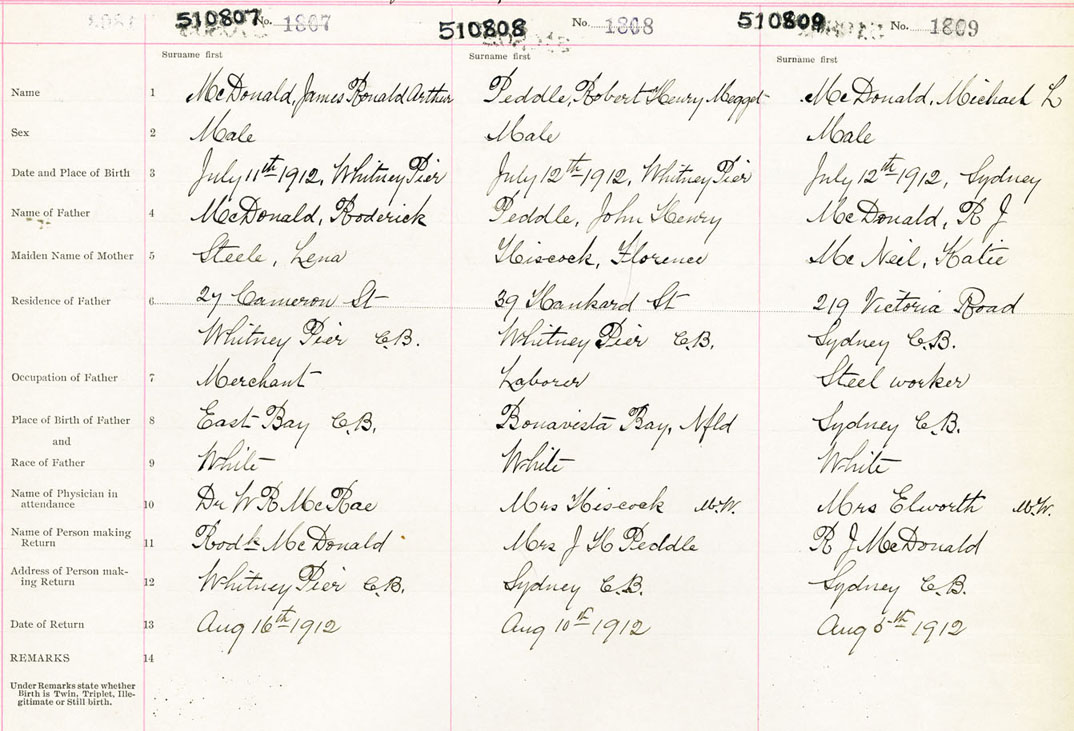 510807 No. 1807 510808 No. 1808 510809 No. 1809
Surname first Surname first Surname first
Name 1 McDonald, James Ronald Arthur Peddle, Robert Henry Megget McDonald, Michael L
Sex 2 Male Male Male
Date and Place of Birth 3 July 11th 1912, Whitney Pier July 12th 1912, Whitney Pier July 12th 1912, Sydney
Name of Father 4 McDonald, Roderick Peddle, John Henry McDonald, R J
Maiden Name of Mother 5 Steele, Lena Hiscock, Florence McNeil, Katie
Residence of Father 6 27 Cameron St 39 Hankard St 219 Victoria Road
Whitney Pier C.B. Whitney Pier C.B. Sydney C.B.
Occupation of Father 7 Merchant Laborer Steel worker
Place of Birth of Father 8 East Bay C.B. Bonavista Bay, Nfld Sydney C.B.
and
Race of Father 9 White White White
Name of Physician in
attendance 10 Dr W R McRae Mrs Hiscock M.W. Mrs Elworth M.W.
Name of Person making
Return 11 Rodk McDonald Mrs J H Peddle R J McDonald
Address of Person mak-
ing Return 12 Whitney Pier C.B. Sydney C.B. Sydney C.B.
Date of Return 13 Aug 16th 1912 Aug 10th 1912 Aug 5th 1912
REMARKS 14
Under Remarks state whether
Birth is Twin, Triplet, Ille-
gitimate or Still birth.